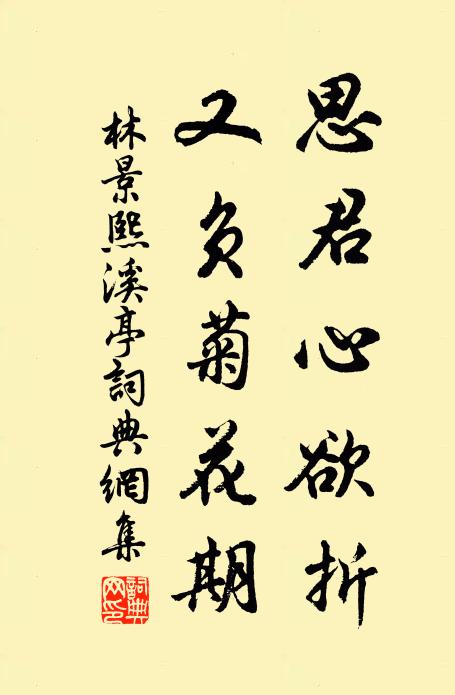 思君心欲折
又負菊花期
林景熙溪亭詞典網集
詞典網印